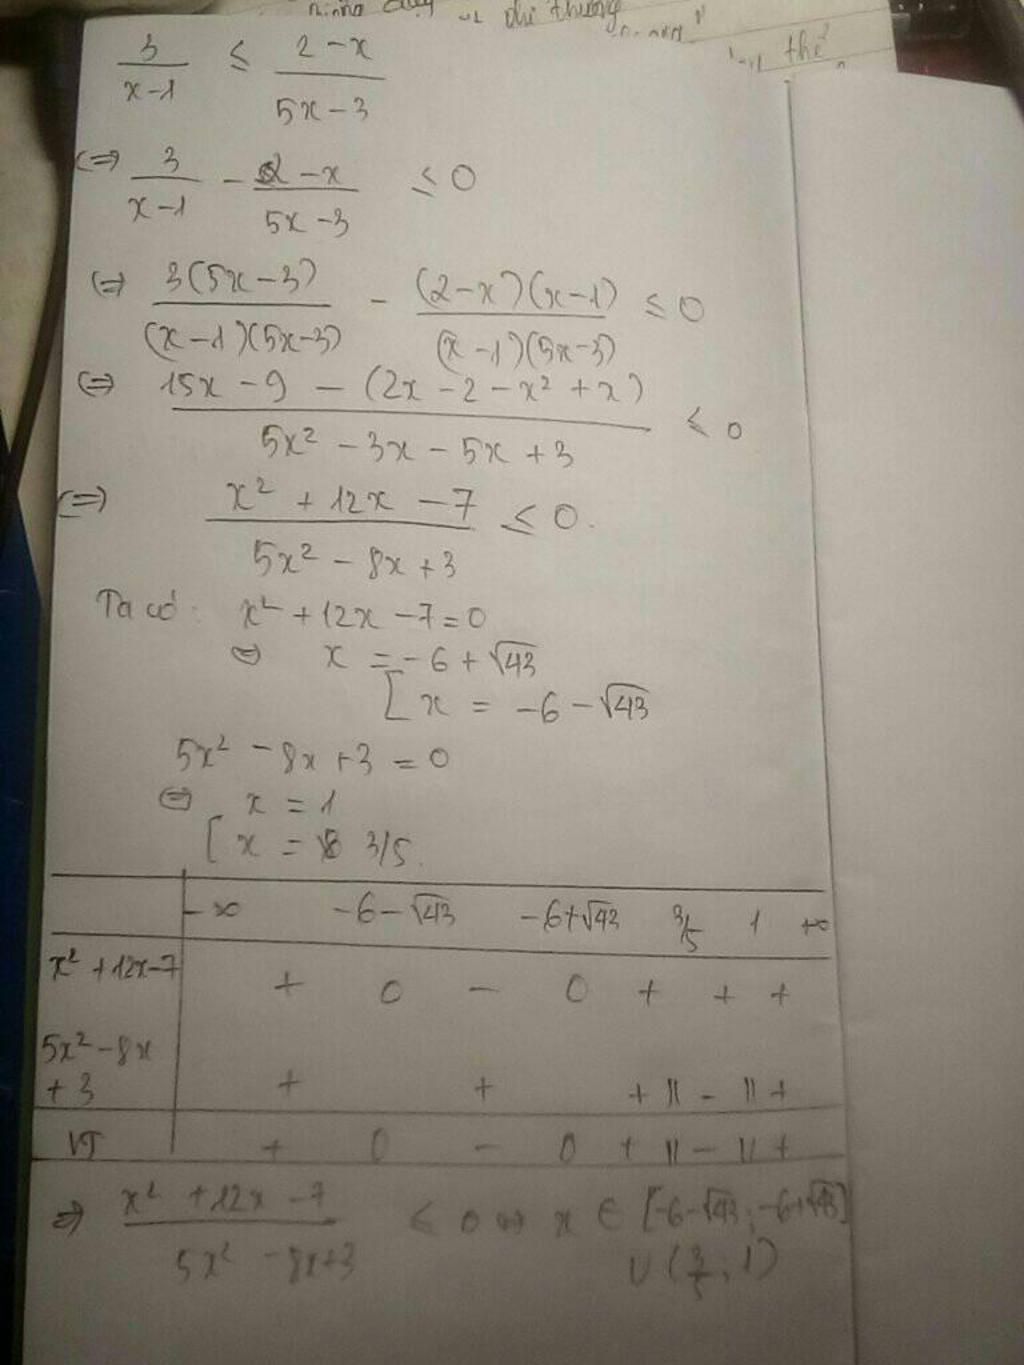 thế
3/(x-1) ≤ (2-x)/(5x-3)
(=) 3/(x-1) - (2-x)/(5x-3) ≤ 0
(=) 3(5x-3)/((x-1)(5x-3)) - (2-x)(x-1)/((x-1)(5x-3)) ≤ 0
(=) (15x - 9 - (2x - 2 - x² + x))/(5x² - 3x - 5x + 3) ≤ 0
(=) (x² + 12x - 7)/(5x² - 8x + 3) ≤ 0.
Ta có: x² + 12x - 7 = 0
(=) x = -6 + √43
[ x = -6 - √43
5x² - 8x + 3 = 0
(=) x = 1
[ x = 3/5.
-∞ -6-√43 -6+√43 3/5 1 +∞
x² + 12x - 7 + 0 - 0 + + +
5x² - 8x
+ 3 + + + || - || +
VT + 0 - 0 + || - || +
=> (x² + 12x - 7)/(5x² - 8x + 3) ≤ 0 (=) x ∈ [-6-√43; -6+√43]
∪ (3/5; 1)